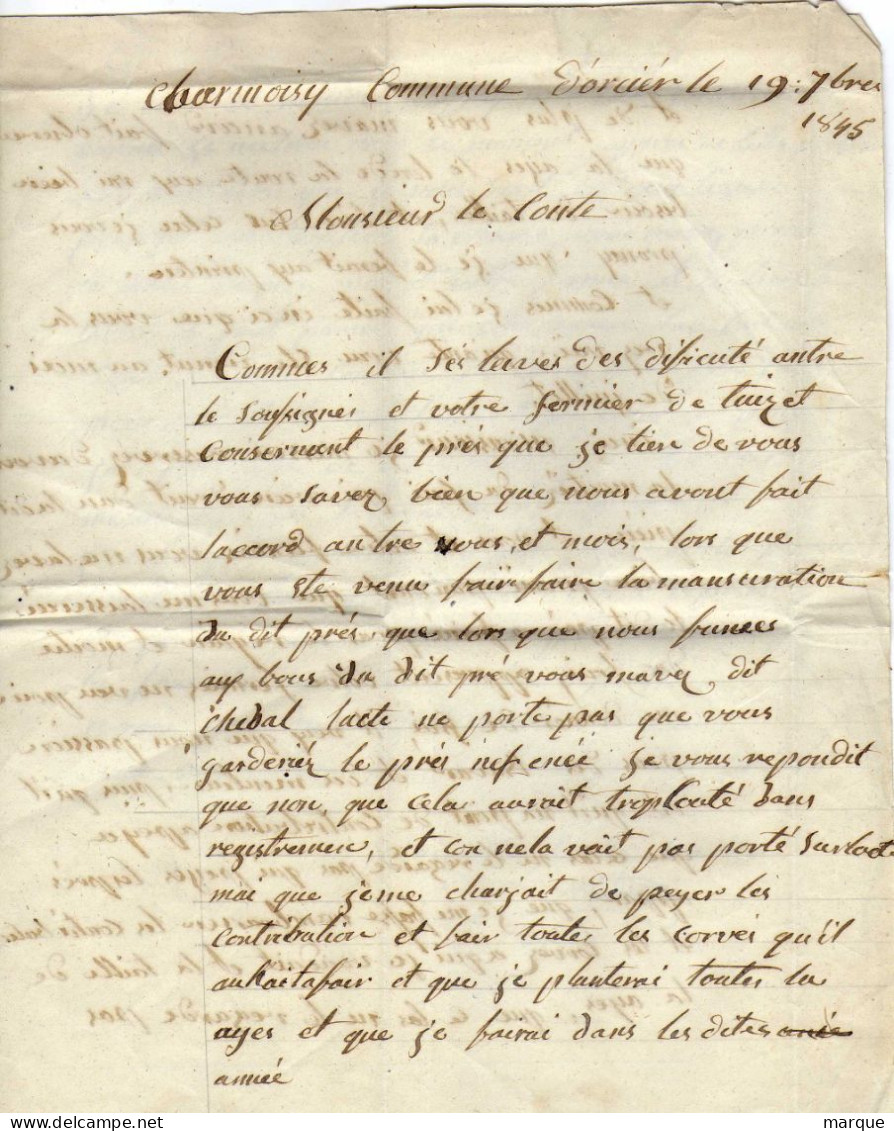 Charmoisy Commune d'orciér le 19: 7bres
1845
Monsieur le Conte
Commes il sés leves des dificuté antre
le soussignés et votre fermier de tuizet
Consernant le prés que je tien de vous
vous savez bien que nous avont fait
laccord antre vous, et mois, lors que
vous ete venu fair faire la mansuration
du dit prés que lors que nous fumes
aux bous du dit pré vous mavez dit
lacte ne porte pas que vous
garderiéz le prés je vous repondit
que non, que cela aurait trop couté dans
registremen, et con nela vait pas porté surlact
mai que jeme charjait de peyer les
Contribution et fair toute les corvés qu'il
aurait a fair et que je planterai toutes la
ayes et que je fairai dans les dites
année
marque.com